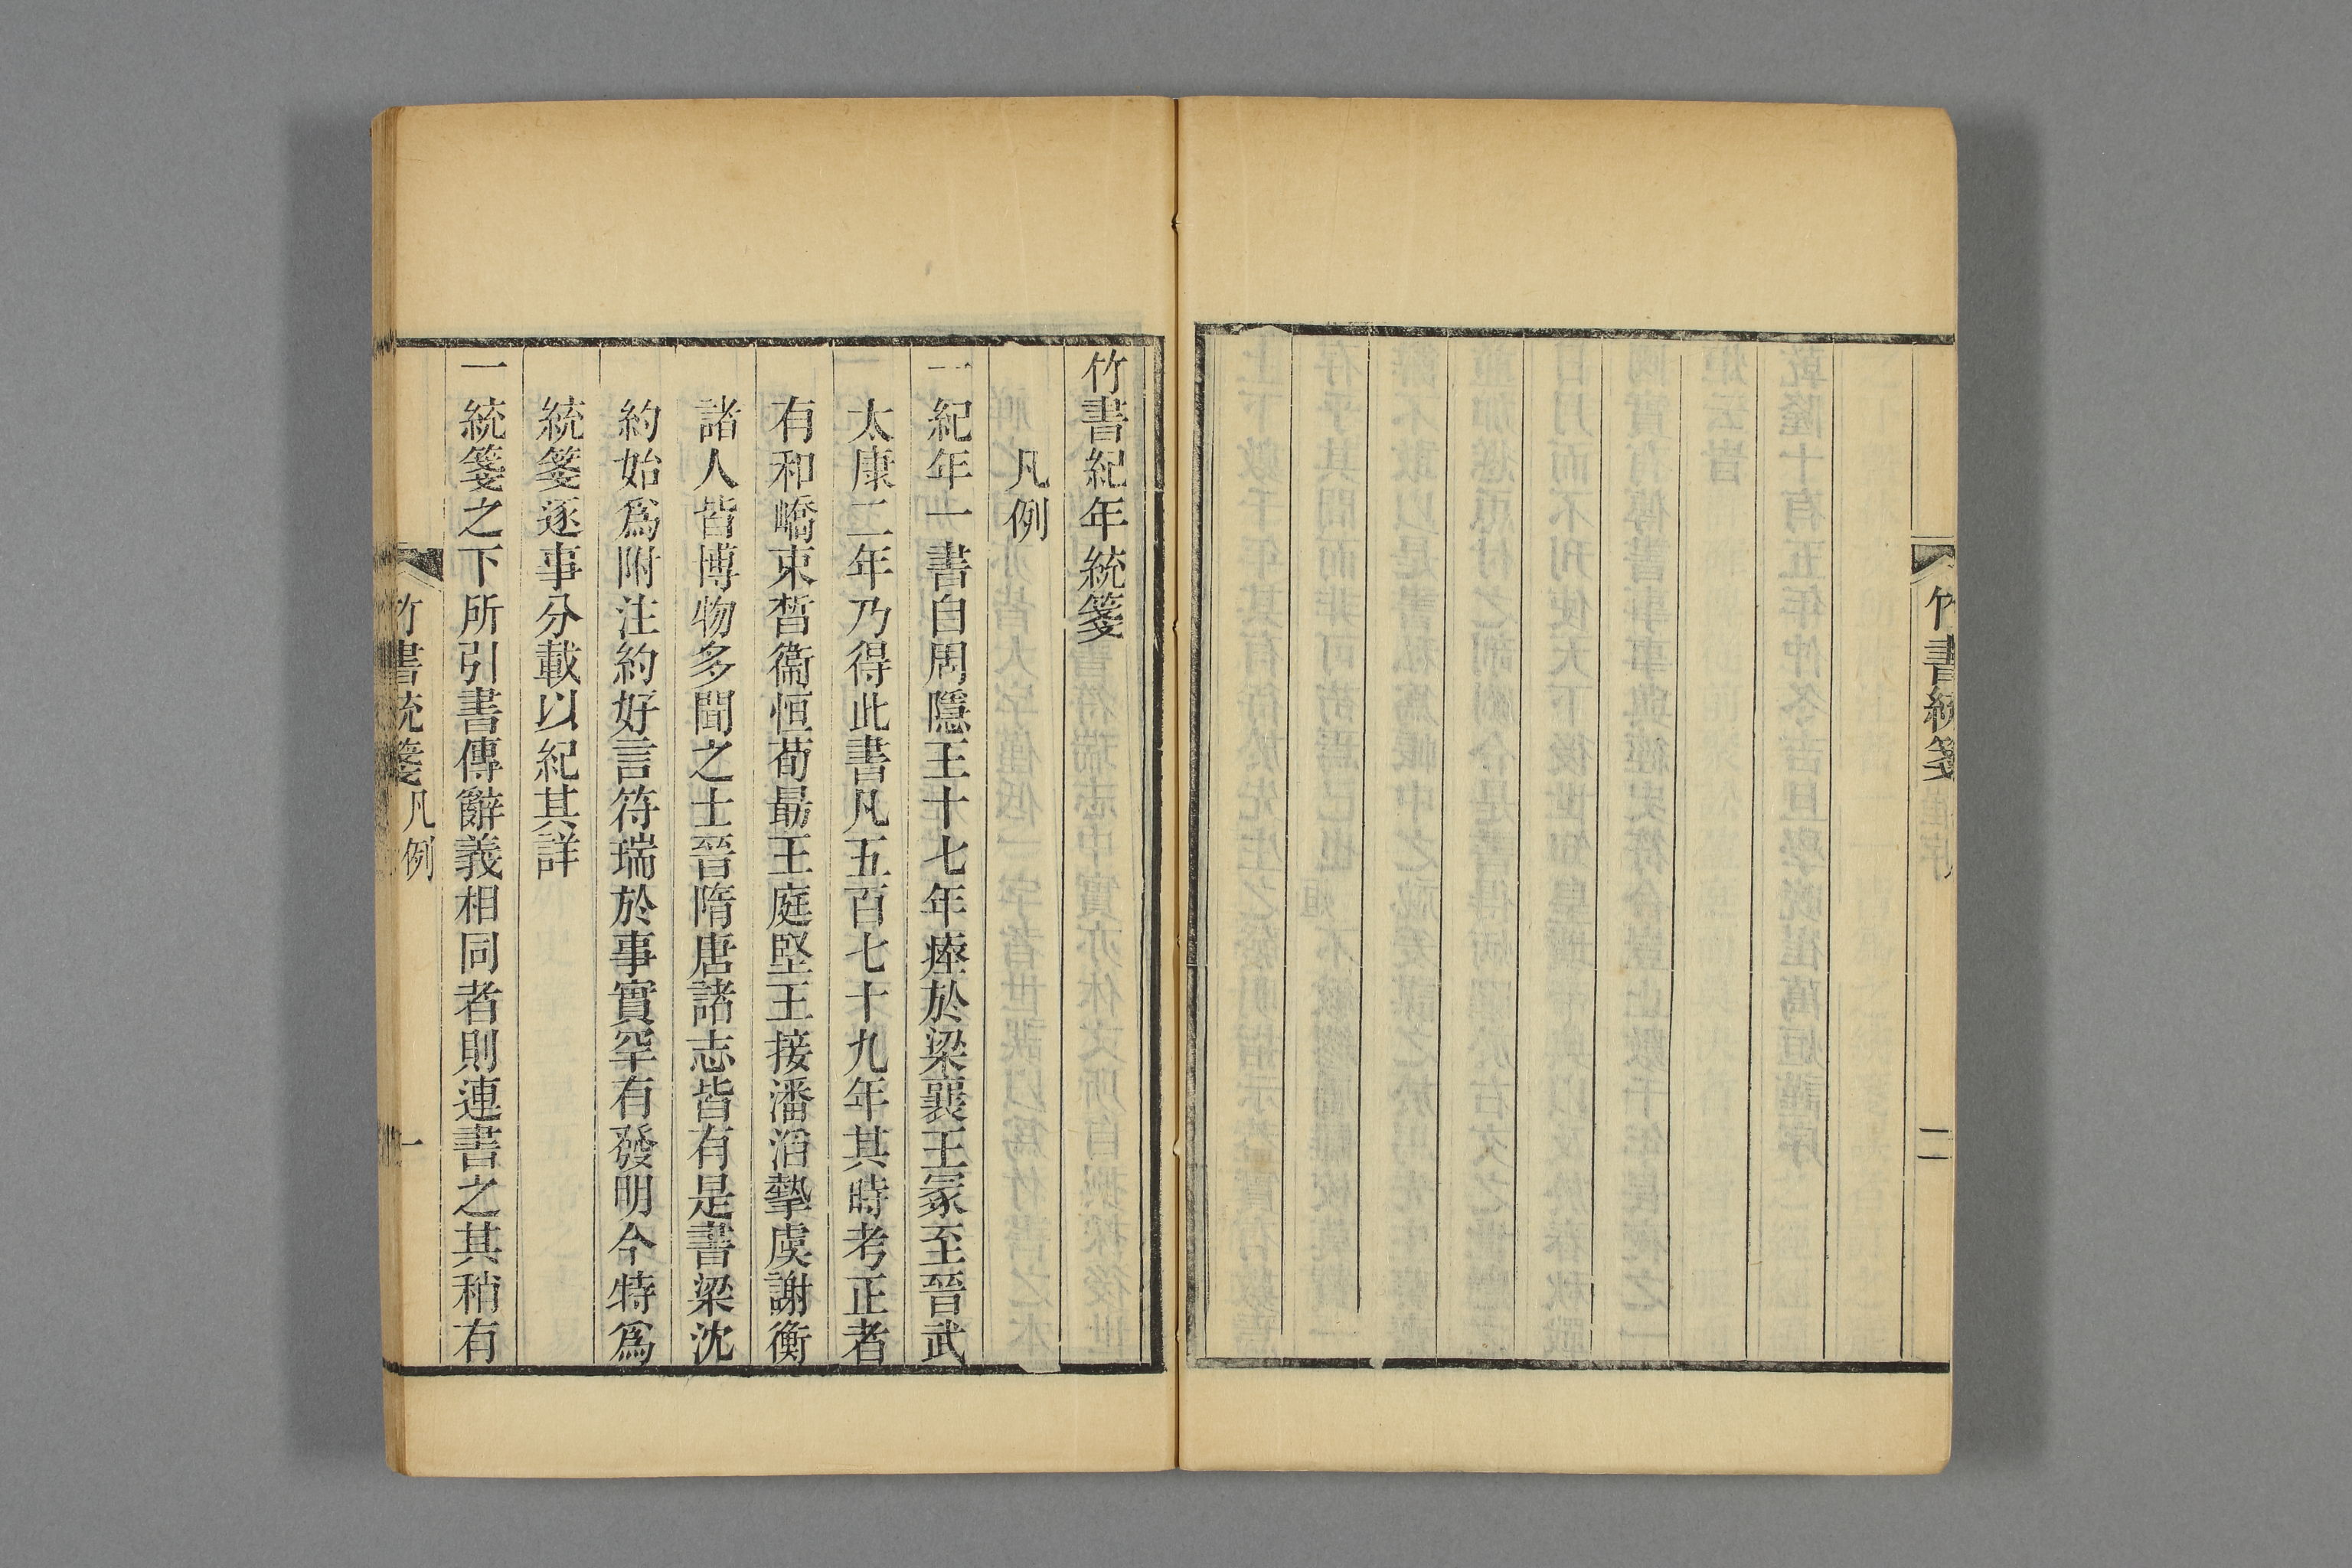 竹書統箋
二
竹書紀年統箋
凡例
一紀年一書自周隱王十七年瘞於梁襄王冢至晉武
太康二年乃得此書凡五百七十九年其時考正者
有和嶠束晳衞恒荀勗王庭堅王接潘滔摯虞謝衡
諸人皆博物多聞之士晉隋唐諸志皆有是書梁沈
約始爲附注約好言符瑞於事實罕有發明今特爲
統箋逐事分載以紀其詳
一統箋之下所引書傳辭義相同者則連書之其稍有
竹書統箋 凡例 一